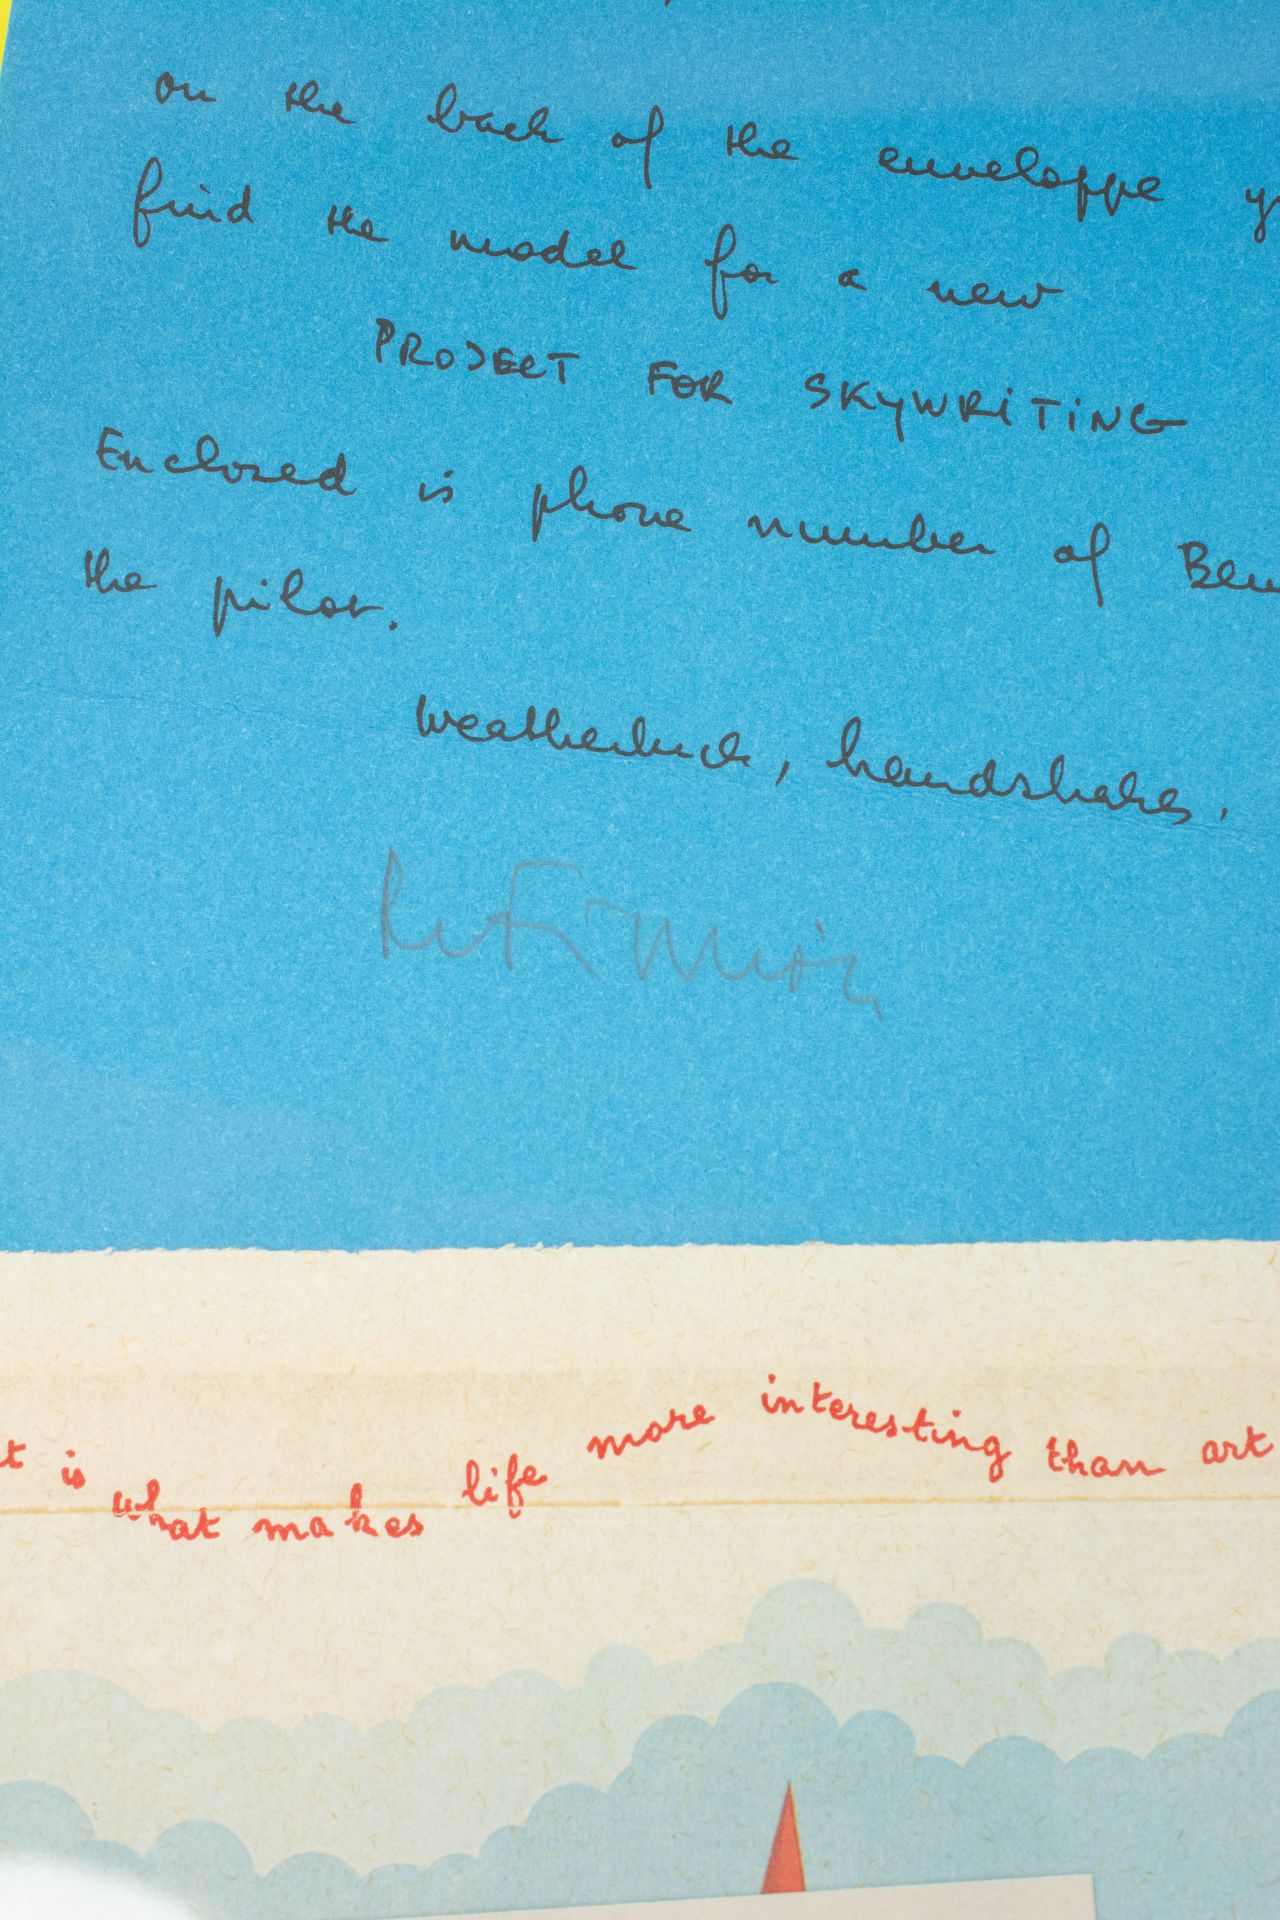 on the back of the enveloppe
find the model for a new
PROJECT FOR SKYWRITING
Enclosed is phone number of
the pilot.
Weatherluck, handshakes.
is what makes life more interesting than art